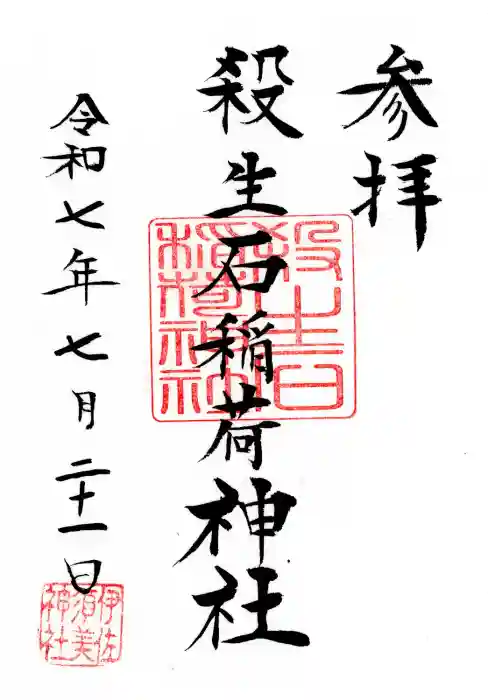 参拝
殺生石稲荷神社
殺生石
稲荷神社
令和七年七月二十一日
伊佐
須美
神社